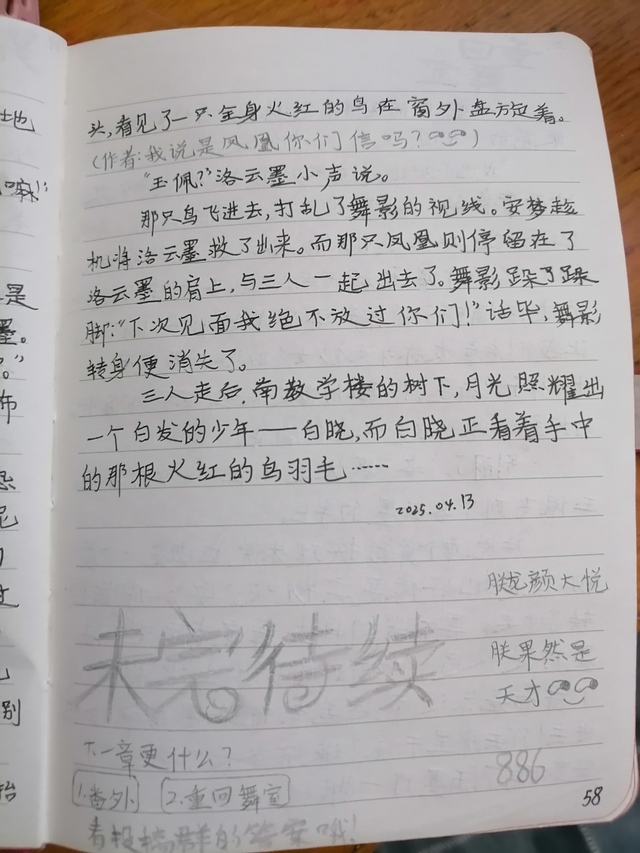 地
嘛!"
是
墨。
。"
布
恐
尼
别
始
头,看见了一只全身火红的鸟在窗外盘旋着。
(作者:我说是凤凰你们信吗?)
"玉佩?"洛云墨小声说。
那只鸟飞进去,打乱了舞影的视线。安梦趁
机将洛云墨救了出来。而那只凤凰则停留在了
洛云墨的肩上,与三人一起出去了。舞影跺了跺
脚:"下次见面我绝不放过你们!"话毕,舞影
转身便消失了。
三人走后,南教学楼的树下,月光照耀出
一个白发的少年——白晓,而白晓正看着手中
的那根火红的鸟羽毛……
2025.04.13
龙颜大悦
未完待续
朕果然是
天才
下一章更什么?
886
1.番外 2.重回舞室
看投稿群的答案哦!
58